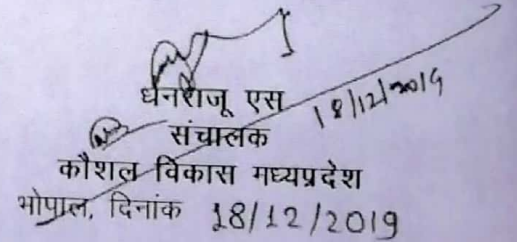 धनराजू एस
18/12/2019
संचालक
कौशल विकास मध्यप्रदेश
भोपाल, दिनांक 18/12/2019